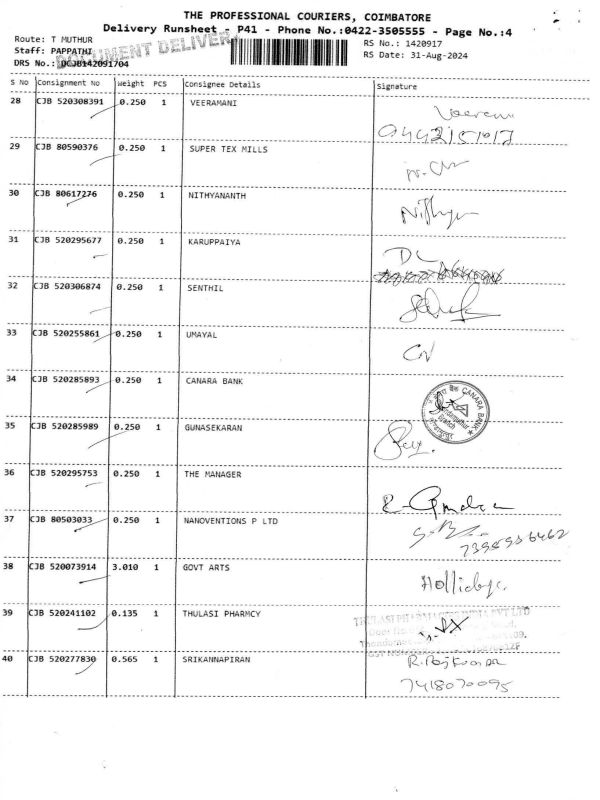 THE PROFESSIONAL COURIERS, COIMBATORE
Delivery Runsheet - P41 - Phone No.:0422-3505555 - Page No.:4
Route: T MUTHUR
RS No.: 1420917
Staff: PAPPATHI
RS Date: 31-Aug-2024
DOCUMENT DELIVERY
DRS No.: DCJB142091704
S No Consignment No Weight PCS Consignee Details Signature
28 CJB 520308391 0.250 1 VEERAMANI
29 CJB 80590376 0.250 1 SUPER TEX MILLS
30 CJB 80617276 0.250 1 NITHYANANTH
31 CJB 520295677 0.250 1 KARUPPAIYA
DL
32 CJB 520306874 0.250 1 SENTHIL
33 CJB 520255861 0.250 1 UMAYAL
34 CJB 520285893 0.250 1 CANARA BANK
CANARA BANK
Branch
35 CJB 520285989 0.250 1 GUNASEKARAN
36 CJB 520295753 0.250 1 THE MANAGER
37 CJB 80503033 0.250 1 NANOVENTIONS P LTD
38 CJB 520073914 3.010 1 GOVT ARTS
Holliday.
39 CJB 520241102 0.135 1 THULASI PHARMCY
THULASI PHARMACIES INDIA PVT LTD
40 CJB 520277830 0.565 1 SRIKANNAPIRAN
R. Rajkumar
7418070095